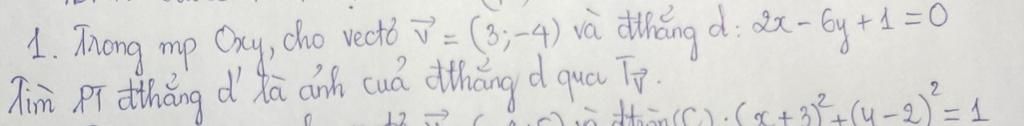 1. Trong mp Oxy, cho vectơ v⃗ = (3;-4) và đthẳng d: 2x - 6y + 1 = 0
Tìm PT đthẳng d' là ảnh của đthẳng d qua Tv⃗.
(x+3)²+(y-2)² = 1